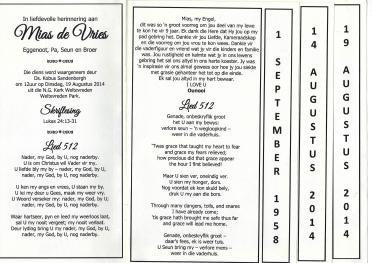 In liefdevolle herinnering aan
Mias de Vries
Eggenoot, Pa, Seun en Broer
Die diens word waargeneem deur
Ds. Kobus Sandenbergh
om 12uur op Dinsdag, 19 Augustus 2014
uit die N.G. Kerk Weltevreden
Weltevreden Park.
Skriflesing
Lukas 24:13-31
Lied 512
Nader, my God, by U, nog naderby.
U is om Christus wil Vader vir my.
U liefde bly my by – nader, my God, by U,
nader, my God, by U, nog naderby.
U ken my angs en vrees, U staan my by.
U lei my deur u Gees, maak my weer vry.
U Woord verseker my: nader, my God, by U,
nader, my God, by U, nog naderby.
Waar hartseer, pyn en leed my weerloos laat,
sal U my nooit vergeet; my nooit verlaat.
Deur lyding bring U my nader, my God, by U,
nader, my God, by U, nog naderby.
Mias, my Engel,
dit was so 'n groot voorreg om jou deel van my lewe
te kon hê vir 9 jaar. Ek dank die Here dat Hy jou op my
pad gebring het. Dankie vir jou Liefde, Kameraadskap
en die voorreg om jou vrou te kon wees. Dankie vir
die vaderfiguur en vriend wat jy vir die kinders en familie
was. Jou rustigheid en kalmte wat jy in ons lewens
gebring het sal ons altyd in ons harte koester. Jy was
'n inspirasie vir ons almal gewees oor hoe jy jou siekte
met grasie gehanteer het tot op die einde.
Ek sal jou altyd in my hart bewaar.
I LOVE U
Ounooi
Lied 512
Genade, onbeskryflik groot
het U aan my bewys:
verlore seun – 'n wegloopkind –
weer in die vaderhuis.
'Twas grace that taught my heart to fear
and grace my fears relieved;
how precious did that grace appear
the hour I first believed!
Maar U sien ver, oneindig ver.
U sien my honger, dors.
Nog voordat ek kon skuld bely,
druk U my aan die bors.
Through many dangers, toils, and snares
I have already come;
'tis grace hath brought me safe thus far
and grace will lead me home.
Genade, onbeskryflik groot –
daar's fees, ek is weer tuis.
U Seun bring my – verlore mens –
weer in die vaderhuis.
1 SEPTEMBER 1958
14 AUGUSTUS 2014
19 AUGUSTUS 2014